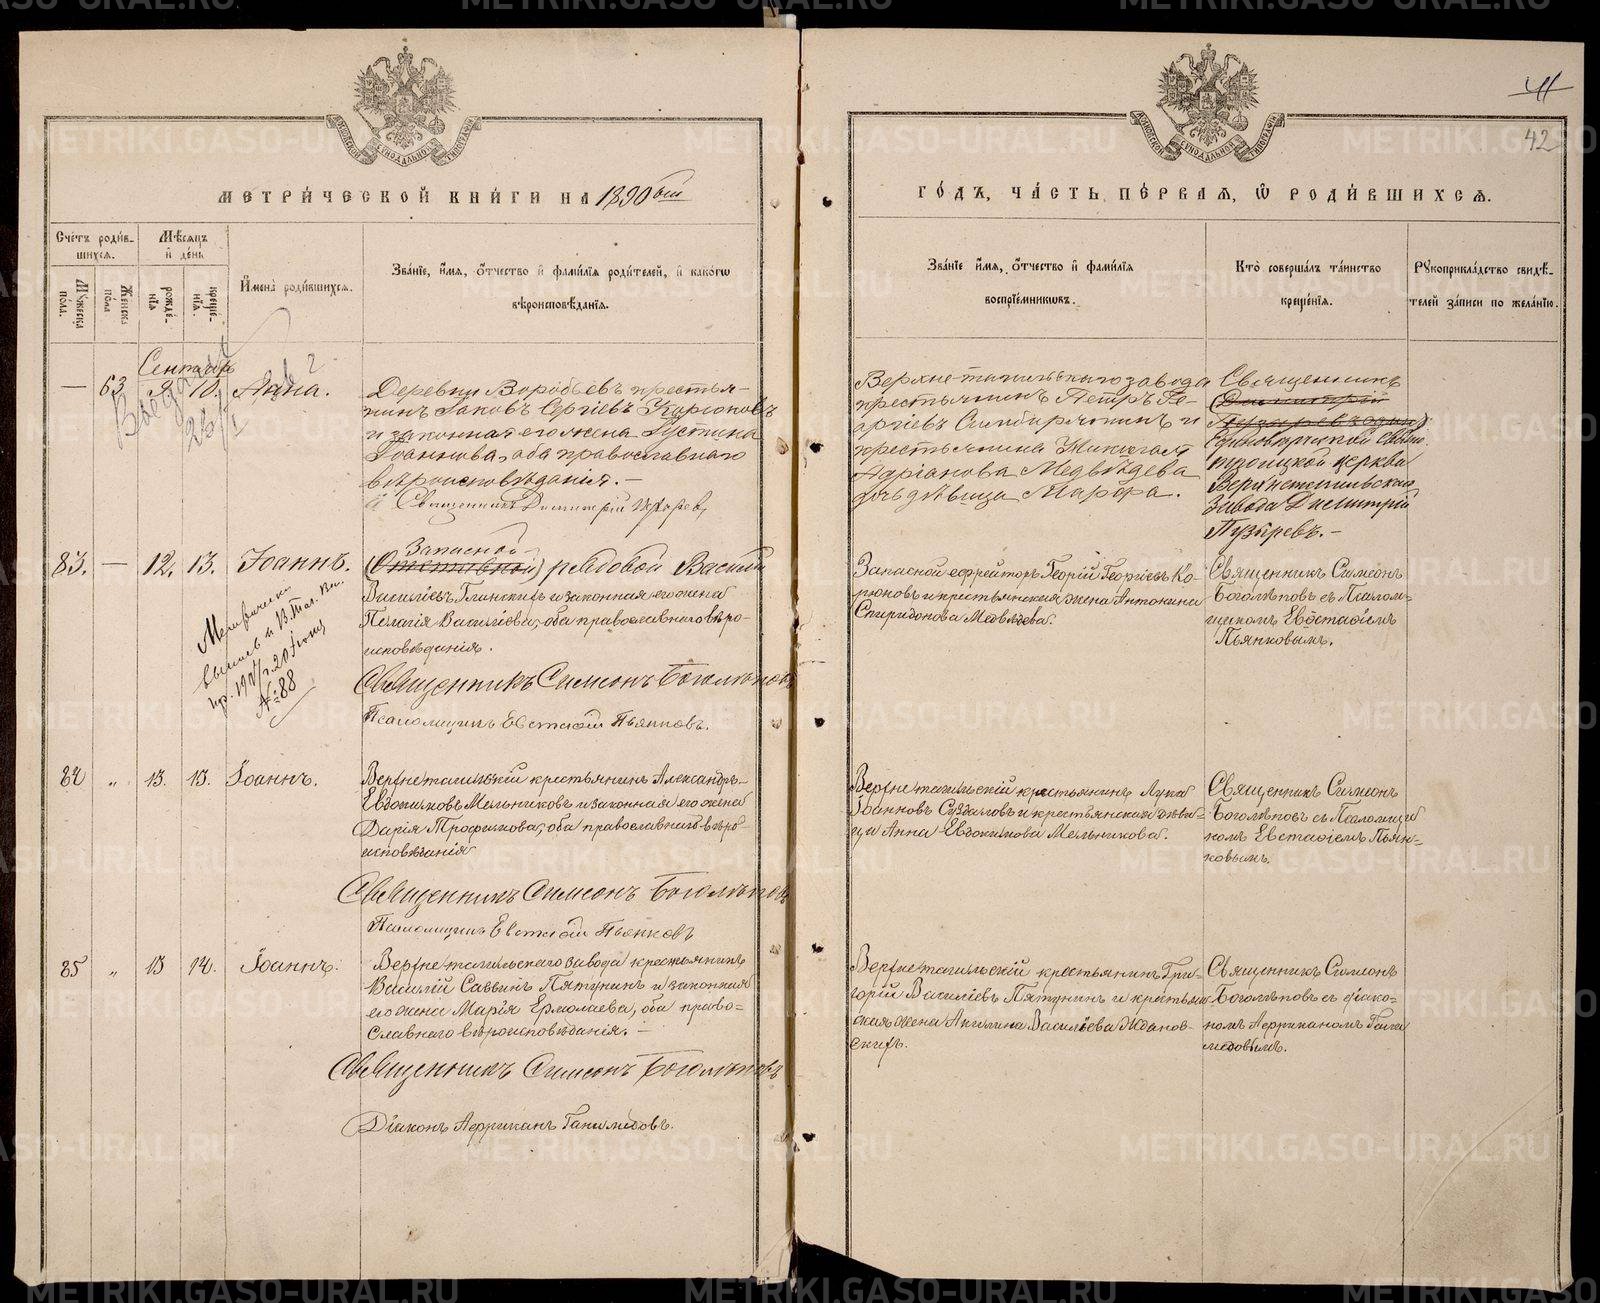 МЕТРИ́ЧЕСКОЙ КНИ́ГИ НА 1890 ый
Сче́тъ роди́в-
шихся.
Мѣсяцъ
и҆ де́нь
Му́жеска
по́ла.
Же́нска
по́ла
рожде́-
нїѧ
креще́-
нїѧ.
И҆мена̀ роди́вшихся.
Зва́нїе, и҆́мя, ѻ҆́тчество и҆ фами́лїѧ роди́телей, и҆ како́гѡ
вѣроисповѣ́данїѧ.
Сентябрь
— 63 9. 10. Анна.
Деревни Воробьевъ крестья-
нинъ Іаковъ Сергіевъ Карюковъ
и законная его жена Іустина
Іоаннова, оба православнаго
вѣроисповѣданія. —
Священникъ Димитрій Пузырев,
83. — 12. 13. Іоаннъ.
Запасной
(Отставной) рядовой Василій
Василіевъ Глинскихъ и законная его жена
Пелагія Василіева, оба православнаго вѣро-
исповѣданія.
Метрическ.
выпись въ В. Таг. вол.
пр. 1911 г. 20 Іюня
№ 88
Священникъ Симеонъ Боголѣповъ
Псаломщикъ Евстафій Пьянковъ.
84 „ 13. 13. Іоаннъ.
Верхнетагильскій крестьянинъ Александръ
Евдокимовъ Мельниковъ и законная его жена
Дарія Трофимова, оба православнаго вѣро-
исповѣданія
Священникъ Симеонъ Боголѣповъ
Псаломщикъ Евстафій Пьянковъ
85 „ 13 14. Іоаннъ.
Верхнетагильскаго завода крестьянинъ
Василій Саввинъ Пятунинъ и законная
его жена Марія Ермолаева, оба право-
славнаго вѣроисповѣданія. —
Священникъ Симеонъ Боголѣповъ
Діаконъ Африканъ Ганимедовъ.
41
42
ГО́ДЪ, ЧА́СТЬ ПЕ́РВАЯ, Ѡ҆ РОДИ́ВШИХСЯ.
Зва́нїе и҆́мя, ѻ҆́тчество и҆ фами́лїѧ
воспрїе́мникѡвъ.
Кто̀ соверша́лъ та́инство
креще́нїѧ.
Рꙋкоприкла́дство свидѣ́-
телей за́писи по жела́нїю.
Верхне-тагильскаго завода
крестьянинъ Петръ Ге-
оргіевъ Симбирятинъ и
крестьянина Николая
Адріанова Медвѣдева
дочь дѣвица Марфа.
Священникъ
(Димитрій
Пузыревъ одинъ)
Единовѣрческой Свято-
троицкой церкви
Верхнетагильскаго
завода Димитрій
Пузыревъ. —
Запасной ефрейторъ Георгій Георгіевъ Ко-
рюковъ и крестьянская жена Антонина
Спиридонова Медвѣдева.
Священникъ Симеонъ
Боголѣповъ съ Псалом-
щикомъ Евстафіемъ
Пьянковымъ.
Верхнетагильскій крестьянинъ Лука
Іоанновъ Суздаловъ и крестьянская дѣви-
ца Анна Евдокимова Мельникова.
Священникъ Симеонъ
Боголѣповъ съ Псаломщи
комъ Евстафіемъ Пьян-
ковымъ.
Верхнетагильскій крестьянинъ Гри-
горій Василіевъ Пятунинъ и крестьян
ская жена Акилина Васильева Жданов-
скихъ.
Священникъ Симеонъ
Боголѣповъ съ діако-
номъ Африканомъ Гани
медовымъ.
METRIKI.GASO-URAL.RU